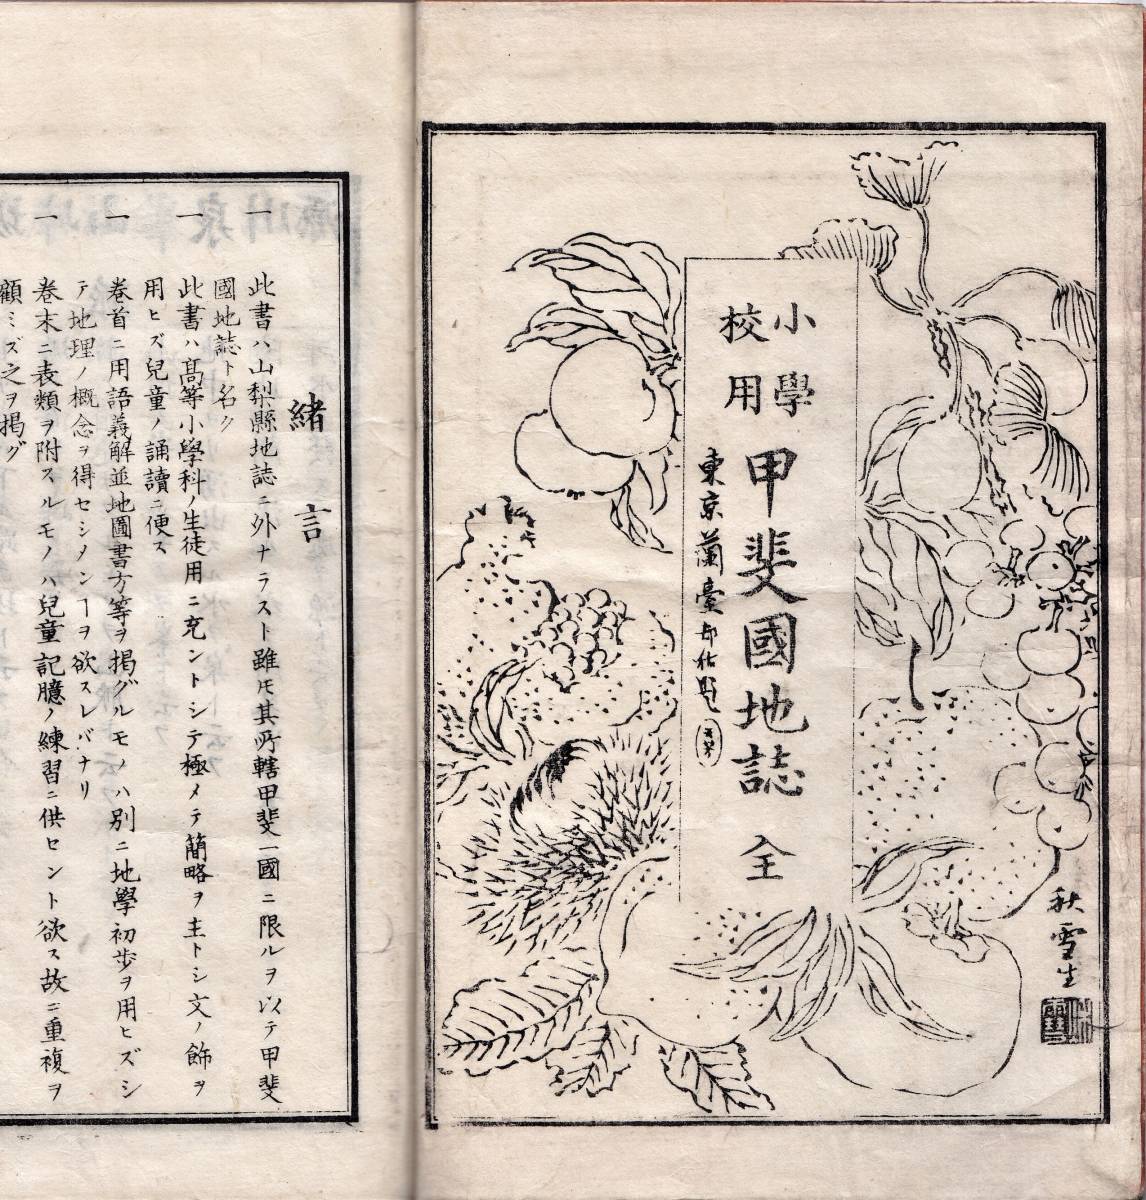 小學
校用
甲斐國地誌 全
東京蘭臺
秋雪生
緒言
一 此書ハ山梨縣地誌ニ外ナラスト雖𪜈其所轄甲斐一國ニ限ルヲ以テ甲斐
國地誌ト名ク
一 此書ハ髙等小學科ノ生徒用ニ充ントシテ極メテ簡略ヲ主トシ文ノ飾ヲ
用ヒズ兒童ノ誦讀ニ便ス
一 卷首ニ用語義解並地圖書方等ヲ掲グルモノハ別ニ地學初歩ヲ用ヒズシ
テ地理ノ概念ヲ得セシメンヿヲ欲スレバナリ
一 卷末ニ表類ヲ附スルモノハ兒童記臆ノ練習ニ供セント欲ス故ニ重複ヲ
顧ミズ之ヲ掲グ